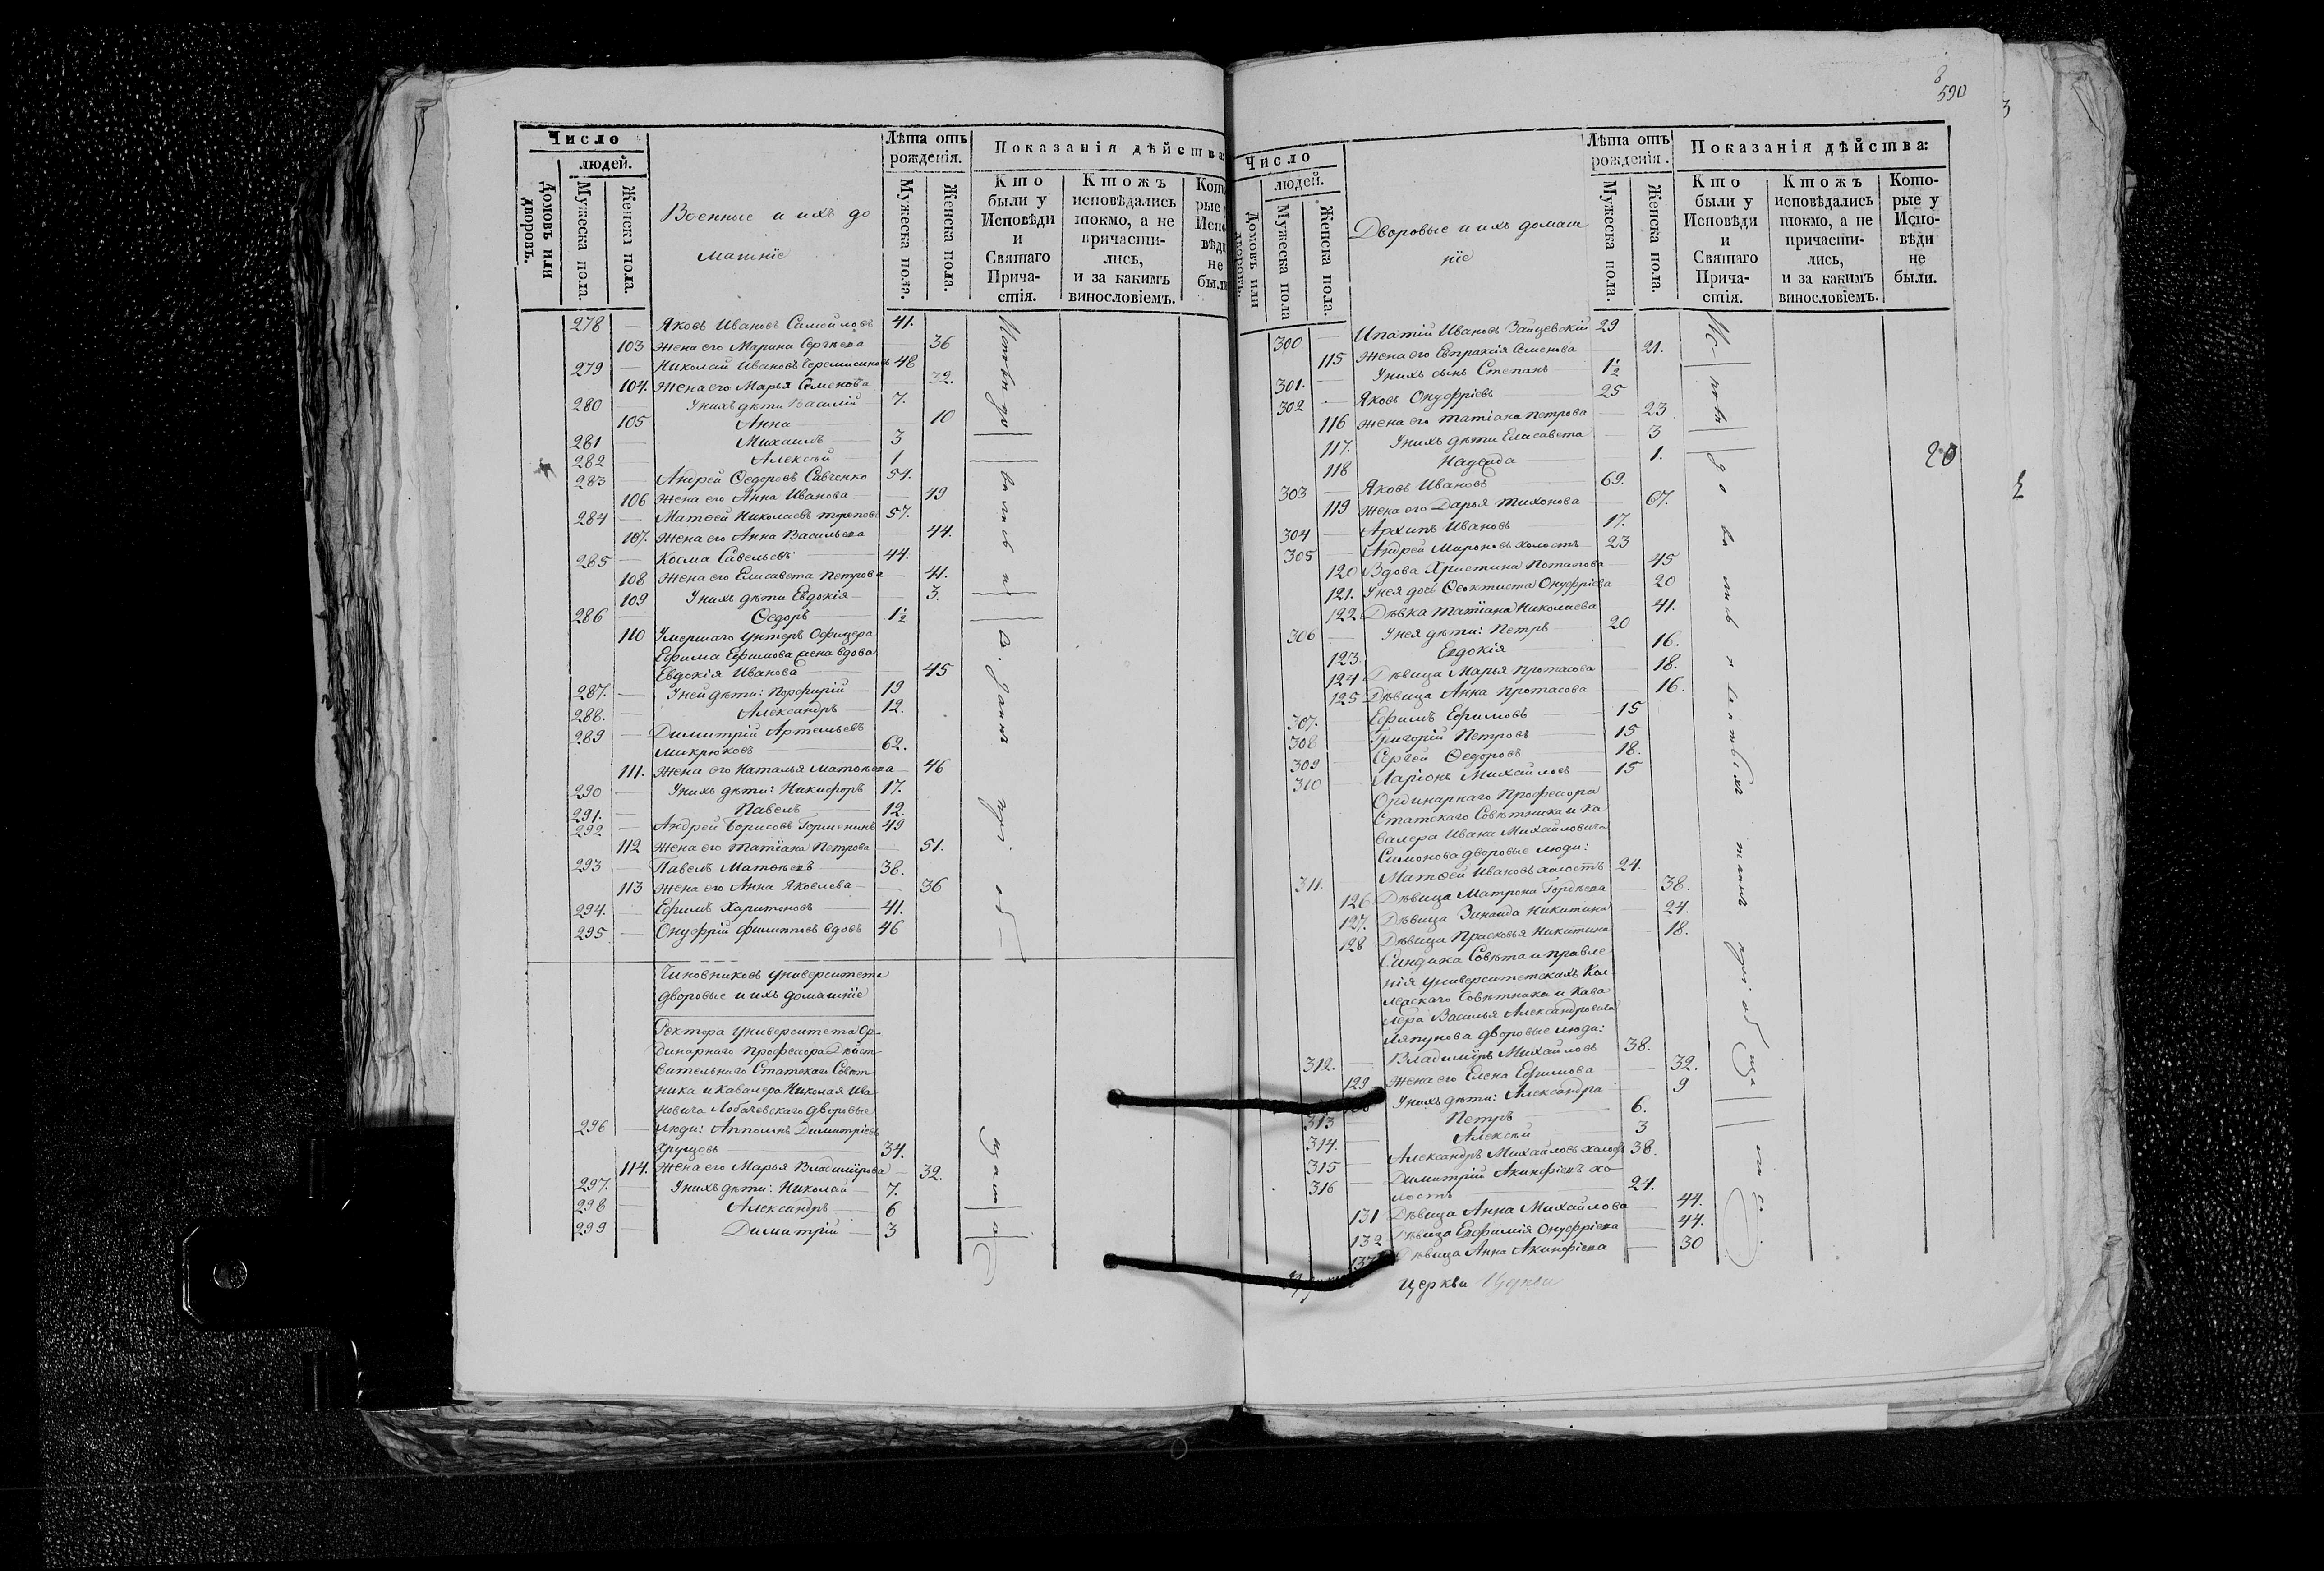 8
590
3
Число
людей.
Домовъ или дворовъ.
Мужеска пола.
Женска пола.
Военные и ихъ до
машніе
Лѣта отъ рожденія.
Мужеска пола.
Женска пола.
Показанія дѣйства
Кто были у Исповѣди и Святаго Прича-стія.
Ктожъ исповѣдались токмо, а не причасти-лись, и за какимъ винословіемъ.
278 — Яковъ Ивановъ Самойловъ 41.
103 Жена его Марина Сергѣева 36
279 — Николай Ивановъ Черемисиновъ 48
104. Жена его Марья Семенова 32.
280 — У нихъ дѣти Василій — 7.
105 Анна — 10
281 — Михаилъ — 3
282 — Алексѣй — 1
283 — Андрей Ѳедоровъ Савченко 54.
106 Жена его Анна Иванова — 49
284 — Матѳей Николаевъ 57.
107. Жена его Анна Васильева — 44.
285 — Косма Савельевъ 44.
108 Жена его Елисавета Петрова — 41.
109 У нихъ дѣти Евдокія — 3.
286 — Ѳедоръ — 1½
110 Умершаго Унтеръ Офицера
Ефима Ефимова жена вдова
Евдокія Иванова — 45
287. — У ней дѣти: Порфирій — 19
288. — Александръ — 12.
289 — Димитрій Артемьевъ
Микрюковъ 62.
111. Жена его Наталья Матѳѣева — 46
290 — У нихъ дѣти: Никифоръ 17.
291. — Павелъ — 12.
292 — Андрей Борисовъ Горшенинъ 49
112 Жена его Татіана Петрова — 51.
293 — Павелъ Матѳѣевъ — 38.
113 Жена его Анна Яковлева — 36
294. — Ефимъ Харитоновъ — 41.
295 — Онуфрій Филипповъ вдовъ 46
Чиновниковъ Университета
дворовые и ихъ домашніе
Ректора Университета Ор-
динарнаго Профессора Дѣйст-
вительнаго Статскаго Совѣт-
ника и Кавалера Николая Ива-
новича Лобачевскаго дворовые
296 — люди: Апполонъ Димитріевъ
Хрущовъ — 34.
114. Жена его Марья Владимірова — 32.
297. — У нихъ дѣти: Николай — 7.
298 — Александръ — 6
299 — Димитрій — 3
Число
людей.
Домовъ или дворовъ.
Мужеска пола
Женска пола.
Дворовые и ихъ домаш
ніе
Лѣта отъ рожденія.
Мужеска пола.
Женска пола.
Показанія дѣйства:
Кто были у Исповѣди и Святаго Прича-стія.
Ктожъ исповѣдались токмо, а не причасти-лись, и за какимъ винословіемъ.
Кото-рые у Испо-вѣди не были.
300 — Ипатій Ивановъ Зайцевскій 29
115 Жена его Евпраксія Семенова 21.
301. — У нихъ сынъ Степанъ — 1½
302 — Яковъ Онуфріевъ 25
116 Жена его Татіана Петрова — 23
117. У нихъ дѣти Елисавета — 3
118 Надежда — 1.
303 — Яковъ Ивановъ 69.
119 Жена его Дарья Тихонова — 67.
304 — Архипъ Ивановъ 17.
305 — Андрей Мироновъ холостъ 23
120 Вдова Христина Потапова — 45
121. У нея дочь Ѳеоктиста Онуфріева 20
122 Дѣвка Татіана Николаева 41.
306 — У нея дѣти: Петръ — 20
123. Евдокія — 16.
124 Дѣвица Марья Протасова — 18.
125 Дѣвица Анна Протасова — 16.
307. — Ефимъ Ефимовъ — 15
308 — Григорій Петровъ — 15
309 — Сергѣй Ѳедоровъ — 18.
310 — Ларіонъ Михайловъ — 15
Ординарнаго Профессора
Статскаго Совѣтника и Ка
валера Ивана Михайловича
Симонова дворовые люди:
311. — Матѳей Ивановъ холостъ 24.
126 Дѣвица Матрона Гордѣева — 38.
127. Дѣвица Зинаида Никитина — 24.
128 Дѣвица Прасковья Никитина — 18.
Синдика Совѣта и правле
нія университетскихъ Кол
лежскаго Совѣтника и Кава
лера Василья Александровича
Ляпунова дворовые люди:
312. — Владиміръ Михайловъ 38.
129 Жена его Елена Ефимова — 32.
У нихъ дѣти: Александра 9
313 Петръ — 6.
314. — Алексѣй — 3
315 — Александръ Михайловъ холос 38.
316 — Димитрій Акинфіевъ хо-
лостъ — 24.
131 Дѣвица Анна Михайлова — 44.
132 Дѣвица Евфимія Онуфріева — 44.
Дѣвица Анна Акинфіева — 30
20
Церкви